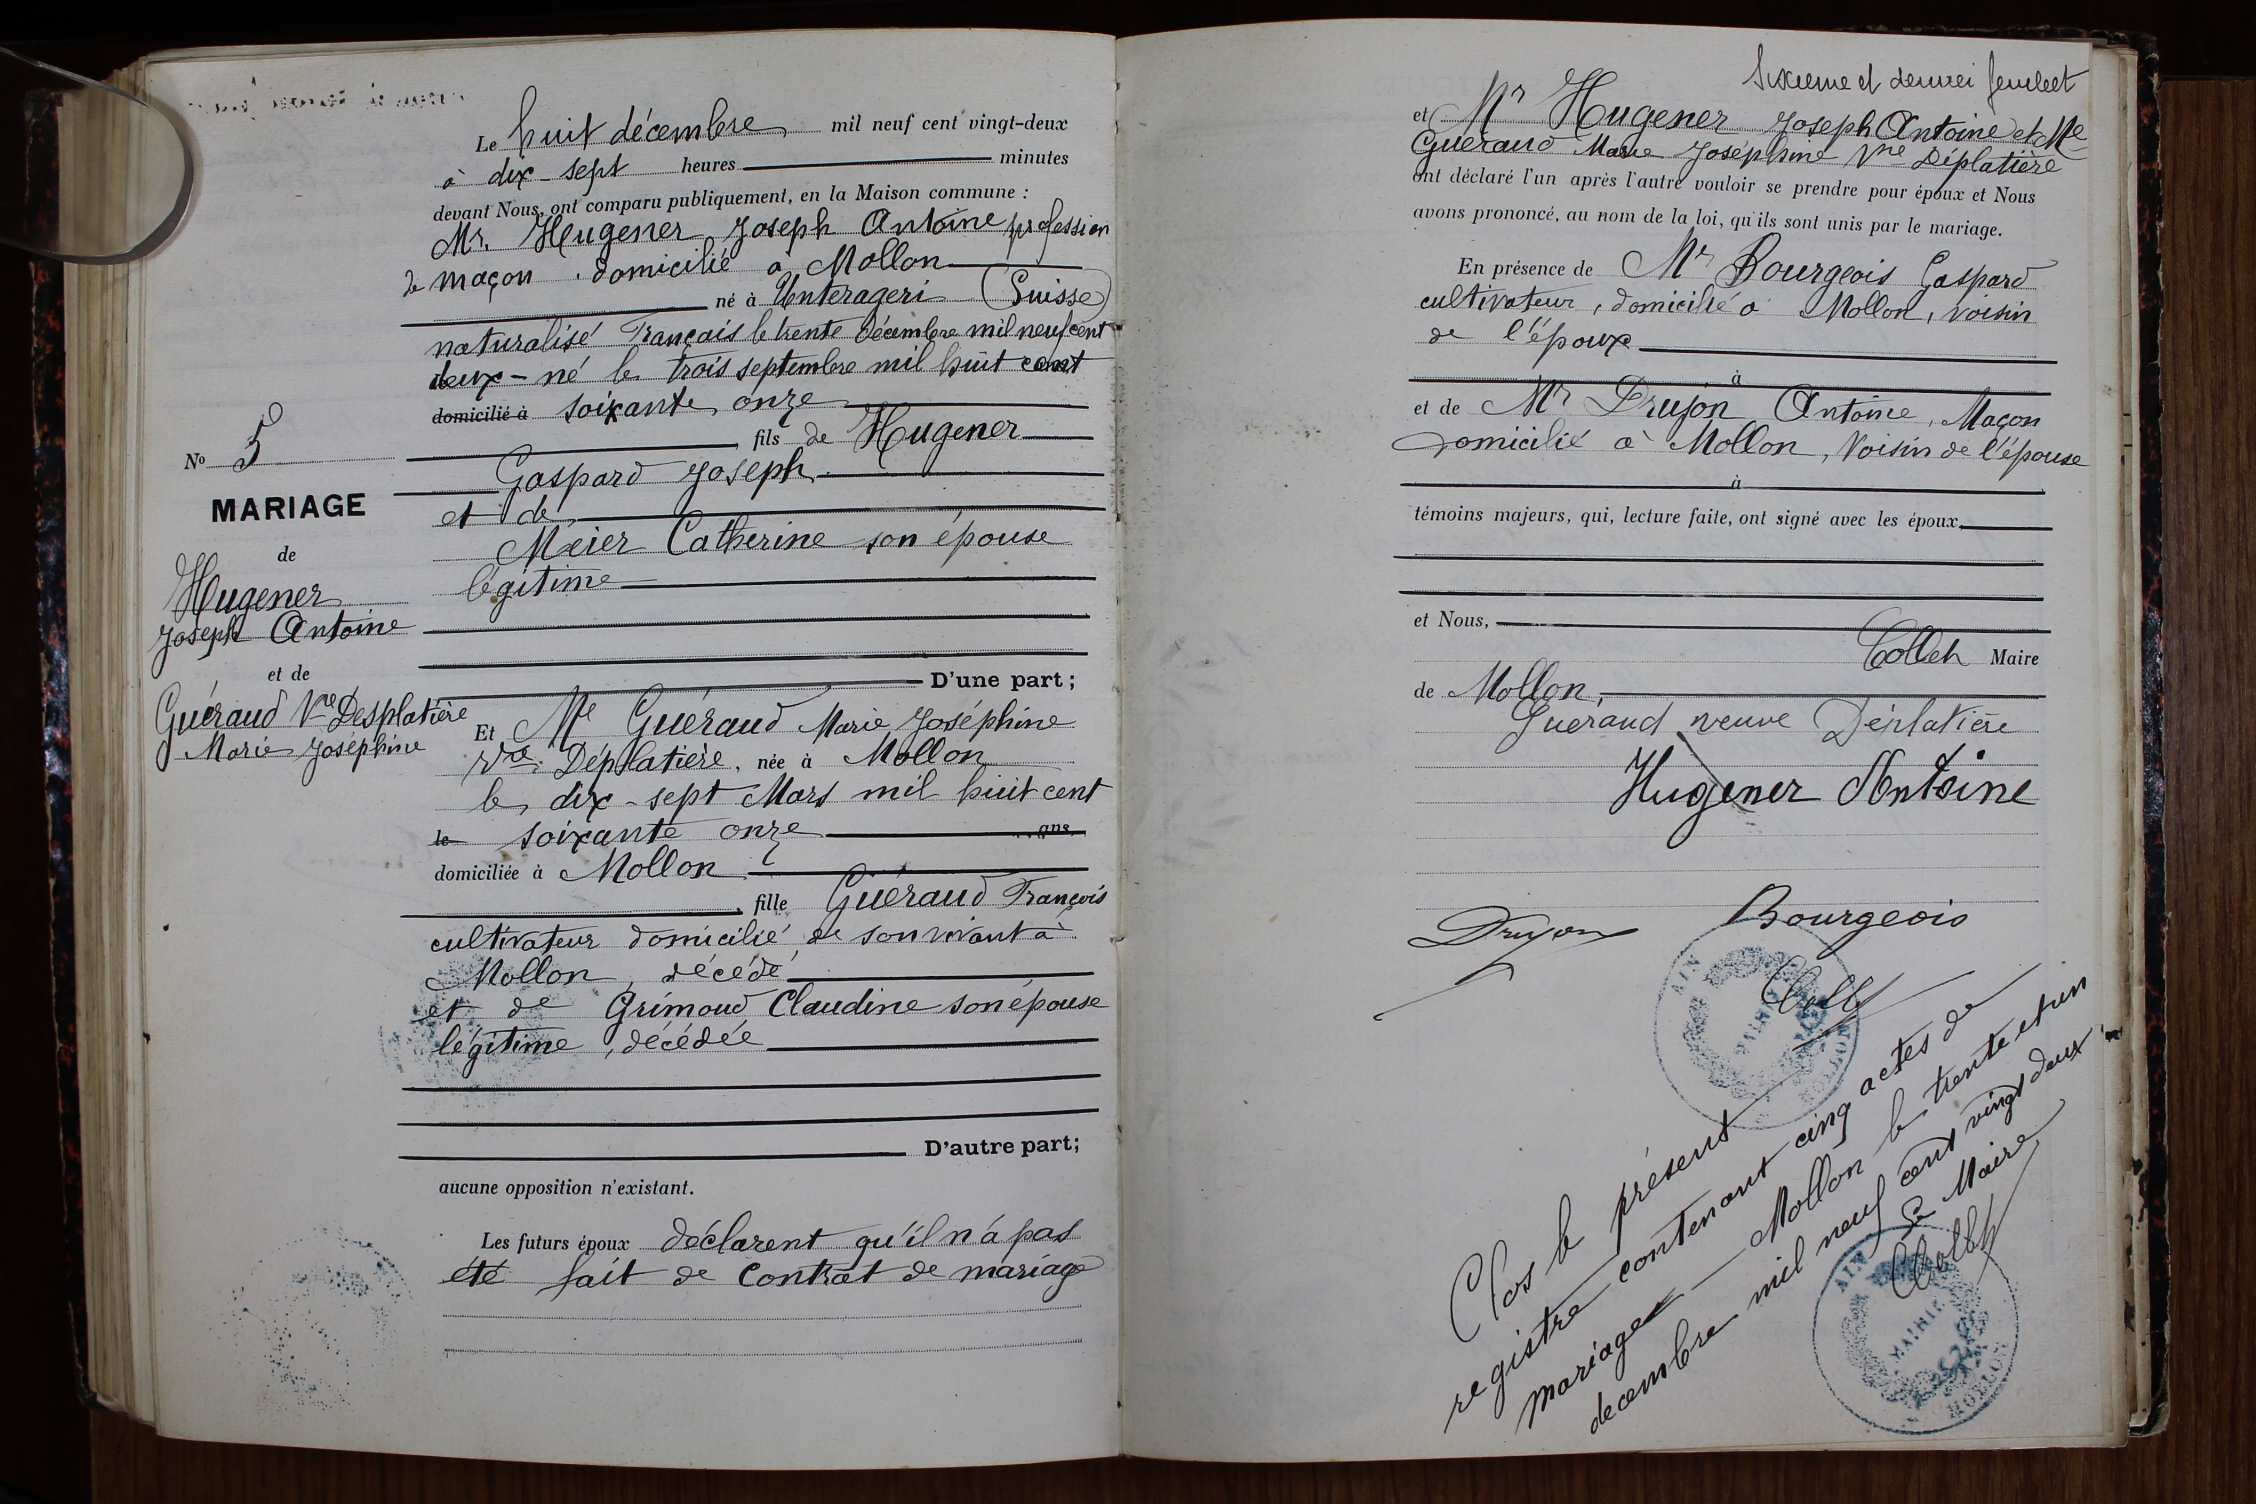 Le huit décembre mil neuf cent vingt-deux
à dix-sept heures minutes
devant Nous, ont comparu publiquement, en la Maison commune :
Mr. Hugener Joseph Antoine profession
de maçon, domicilié à Mollon
né à Unterageri (Suisse)
naturalisé Français le trente décembre mil neuf cent
deux - né le trois septembre mil huit cent
domicilié à soixante onze
fils de Hugener
Gaspard Joseph
et de
Meier Catherine son épouse
légitime
D'une part ;
No 5
MARIAGE
de
Hugener
Joseph Antoine
et de
Guéraud Vve Desplatière
Marie Joséphine
Et Me Guéraud Marie Joséphine
Vve Déplatière, née à Mollon
le dix-sept Mars mil huit cent
le soixante onze ans
domiciliée à Mollon
fille Guéraud François
cultivateur domicilié de son vivant à
Mollon, décédé
et de Grimoud Claudine son épouse
légitime, décédée
D'autre part;
aucune opposition n'existant.
Les futurs époux déclarent qu'il n'a pas
été fait de contrat de mariage
Sixieme et dernier feuillet
et Mr Hugener Joseph Antoine et Me
Guéraud Marie Joséphine Vve Déplatière
ont déclaré l'un après l'autre vouloir se prendre pour époux et Nous
avons prononcé, au nom de la loi, qu'ils sont unis par le mariage.
En présence de Mr Bourgeois Gaspard
cultivateur, domicilié à Mollon, voisin
de l'époux
à
et de Mr Drujon Antoine, Maçon
domicilié à Mollon, Voisin de l'épouse
à
témoins majeurs, qui, lecture faite, ont signé avec les époux,
et Nous,
Collet Maire
de Mollon,
Gueraud veuve Déplatière
Hugener Antoine
Drujon Bourgeois
AIN
MAIRIE
MOLLON
Clos le présent
registre contenant cinq actes de
mariage Mollon le trente et un
decembre mil neuf cent vingt deux
Le Maire
Collet
AIN
MAIRIE
MOLLON